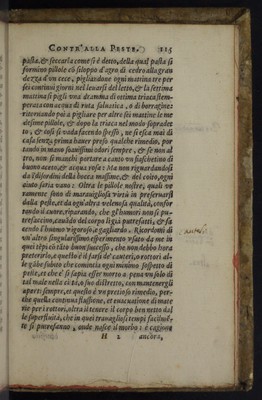 CONTR'ALLA PESTE. 115
pasta, & seccarla come si è detto, della qual pasta si
formino pillole cō siloppo d'agro di cedro alla gran
dezza d'un cece, pigliandone ogni mattina tre per
sei continui giorni nel levarsi del letto, & la settima
mattina si pigli una dramma di ottima triaca stem-
perata con acqua di ruta saluatica, o di borragine:
ritornando poi a pigliare per altre sei mattine le me
desime pillole, & dopo la triaca nel modo sopradet
to, & così si vada facendo spesso, ne si esca mai di
casa senza prima hauer preso qualche rimedio, por
tando in mano
buono aceto, & acqua rosa: Ma non riguardandosi
da i disordini della bocca massime, & del coito, ogni
aiuto saria vano: Oltra le pillole nostre, quali ve
ramente sono di marauigliosa virtù in preseruarsi
dalla peste, et da ogn'altra velenosa qualità, confor
tando il cuore, riparando, che gl'humori non si pu-
trefaccino, cauādo del corpo li già putrefatti, & fa
cendo l'huomo vigoroso, e gagliardo. Ricordomi di
vn'altro singularissimo esperimento vsato da me in
quei tēpi cō felice successo, che non debbo hora
preterirlo, e quello è il farsi de' cauterij, o rottori al-
le gābe subito che comincia ogni minimo sospetto di
peste, et che s'è sapia esser morto a pena vn solo di
tal male nella città, o suo distretto, con mantenergli
aperti sempre, et questo è vn pretioso rimedio, per-
che quella continua flussione, et euacuatione di mate
rie per i rottori, oltra il tenere il corpo ben netto dal
le superfluità, che in quei trauagliosi tempi facilmē-
te si putrefanno, onde nasce il morbo: è cagione
H 2 ancora,